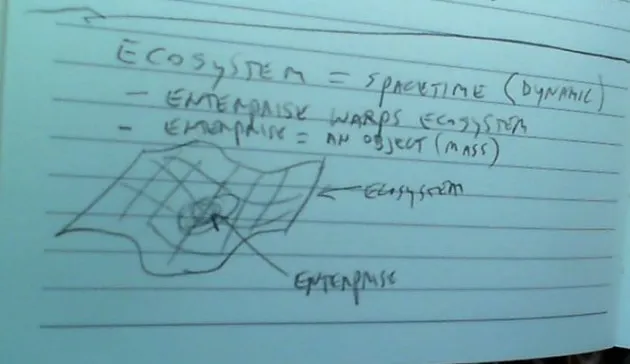 ECOSYSTEM = SPACETIME (DYNAMIC)
- ENTERPRISE WARPS ECOSYSTEM
- ENTERPRISE = AN OBJECT (MASS)
ECOSYSTEM
ENTERPRISE